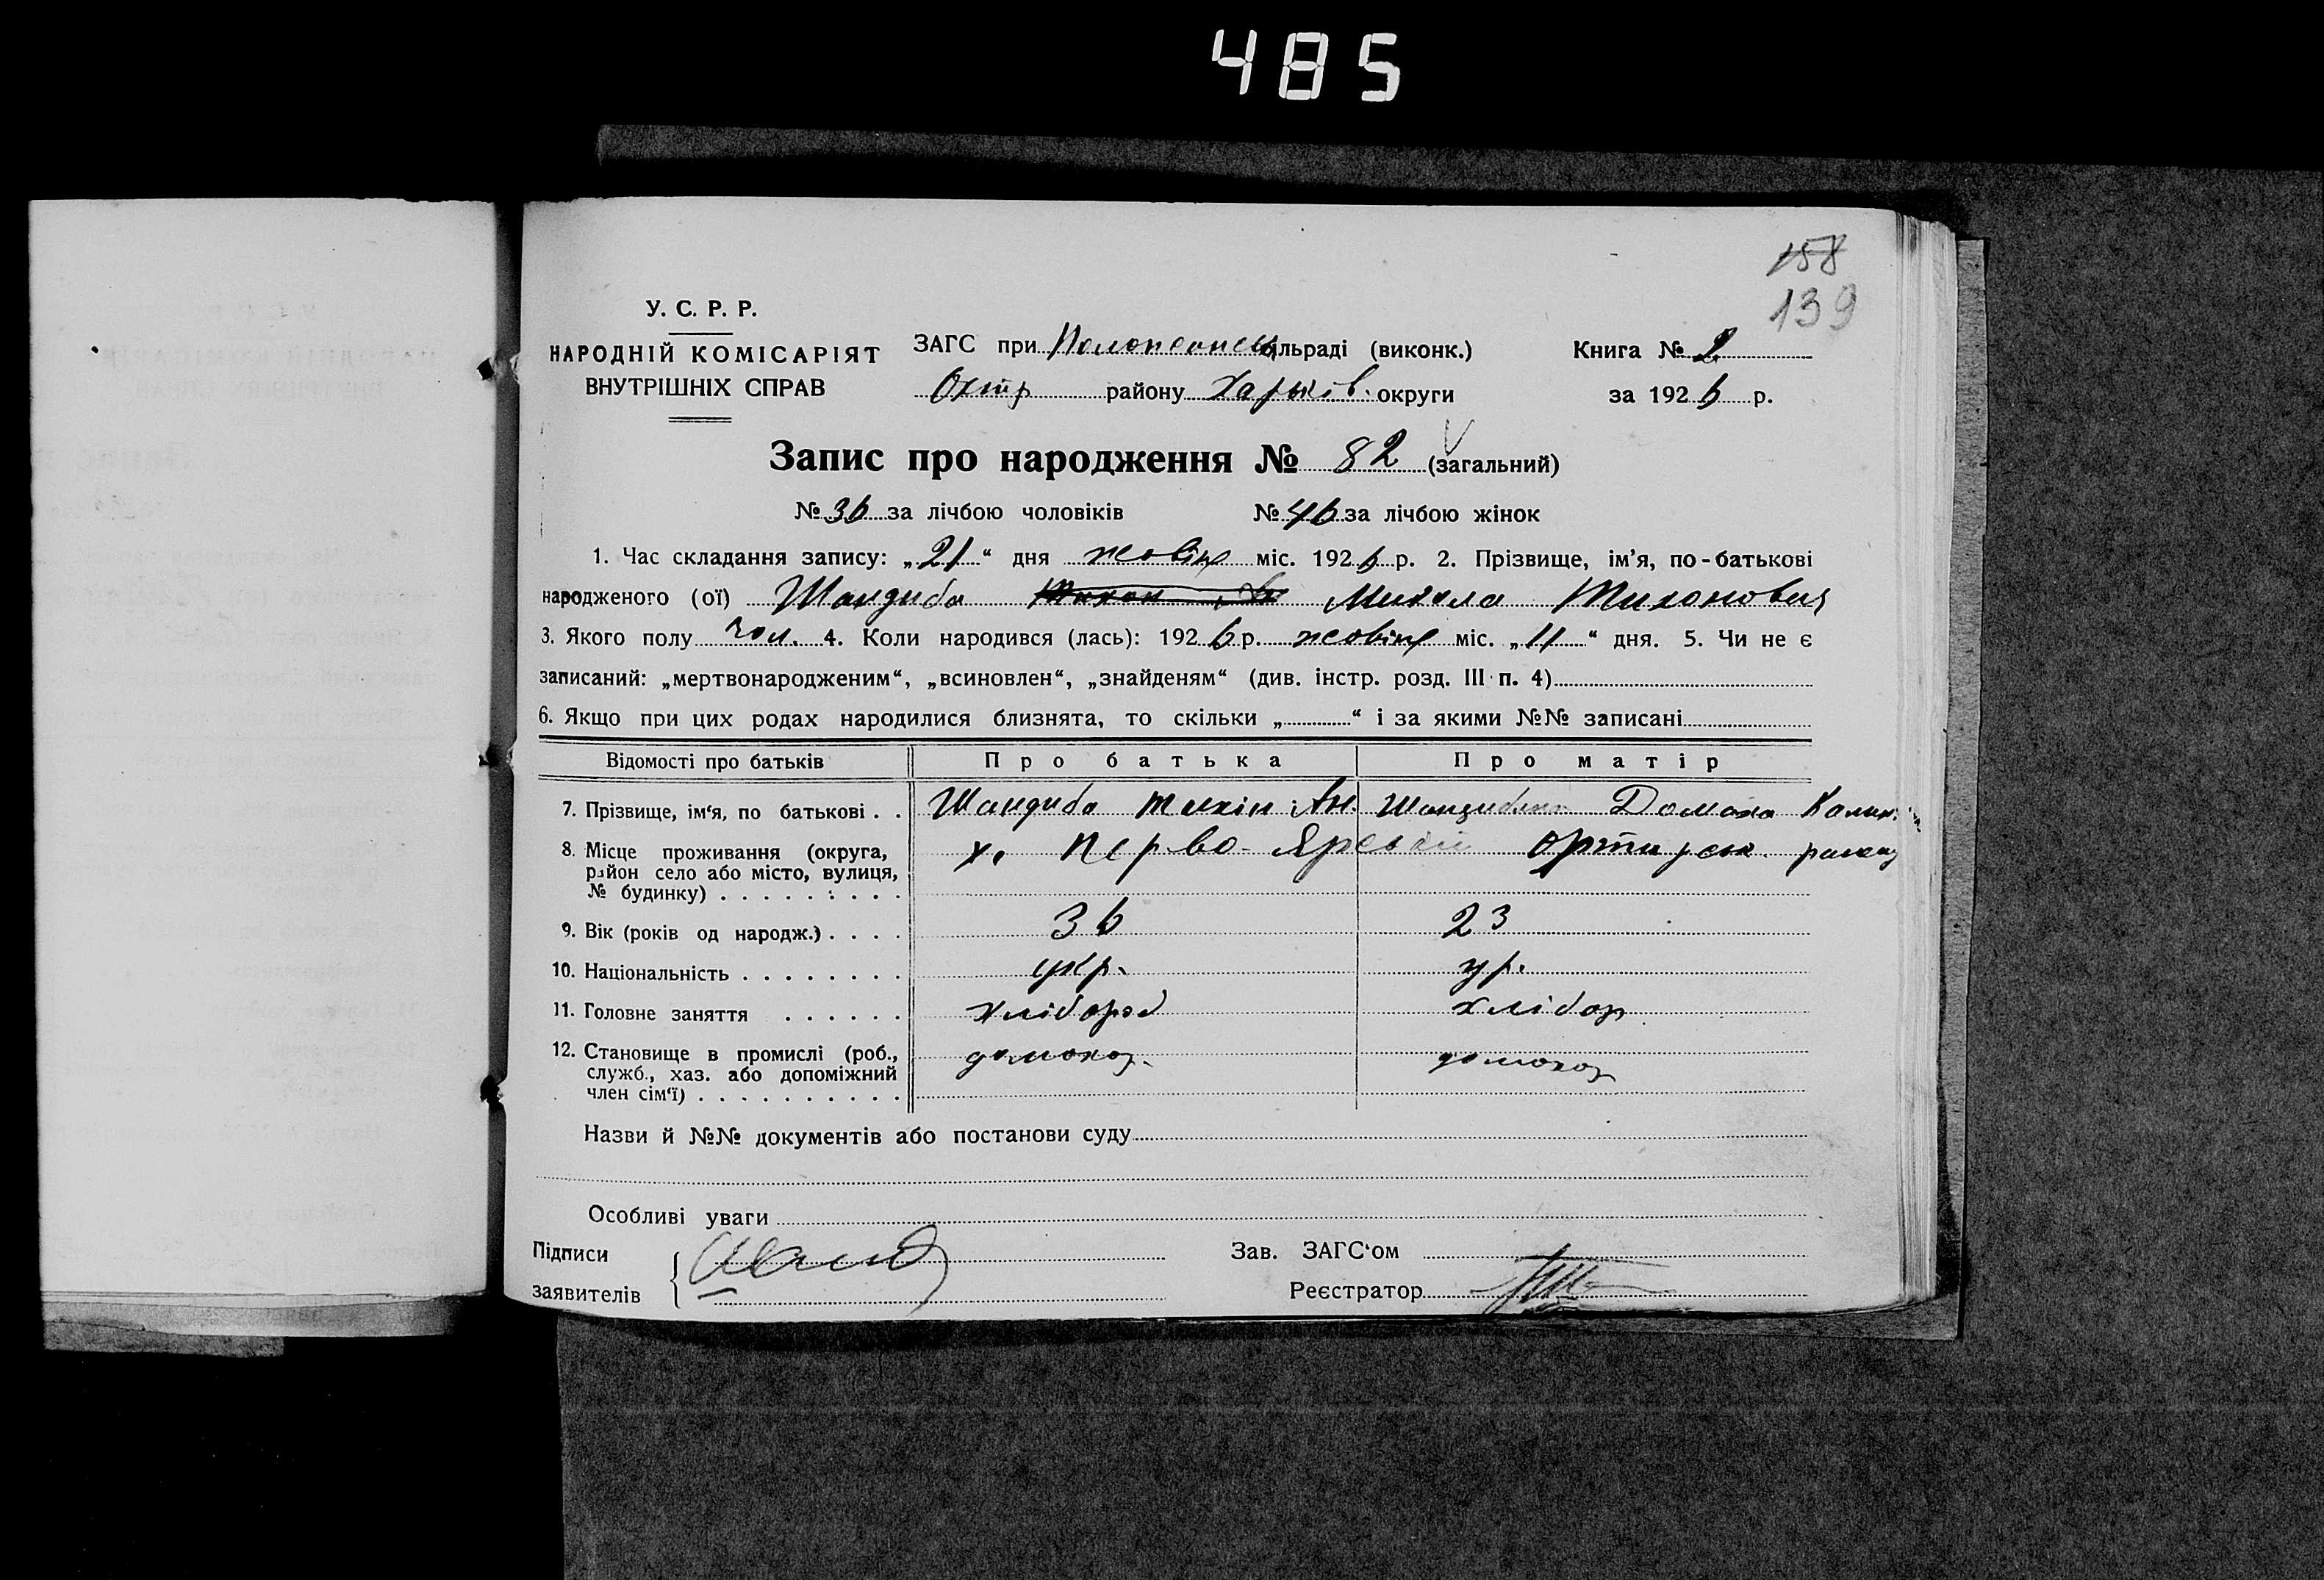 485
158
139
У. С. Р. Р.
НАРОДНІЙ КОМІСАРІЯТ
ВНУТРІШНІХ СПРАВ
ЗАГС при сільраді (виконк.)
району Харьків. округи
Книга № 2
за 1926 р.
Запис про народження № 82 (загальний)
№ 36 за лічбою чоловіків № 46 за лічбою жінок
1. Час складання запису: „21“ дня жовтня міс. 1926 р. 2. Прізвище, ім’я, по-батькові
народженого (ої) Шандиба Микола Тихонович
3. Якого полу чол. 4. Коли народився (лась): 1926 р. жовтня міс. „11“ дня. 5. Чи не є
записаний: „мертвонародженим“, „всиновлен“, „знайденям“ (див. інстр. розд. III п. 4)
6. Якщо при цих родах народилися близнята, то скільки „ “ і за якими №№ записані
Відомості про батьків Про батька Про матір
7. Прізвище, ім‘я, по батькові . . Шандиба Тихін Ан. Домаха
8. Місце проживання (округа,
район село або місто, вулиця,
№ будинку) . . . . . . . . .
х. Перво-
9. Вік (років од народж.) . . . . 36 23
10. Національність . . . . . . . . укр. ур.
11. Головне заняття . . . . . . хлібороб хлібор
12. Становище в промислі (роб.,
служб., хаз. або допоміжний
член сім‘ї) . . . . . . . . . .
домохоз. домохоз
Назви й №№ документів або постанови суду
Особливі уваги
Підписи
заявителів
Зав. ЗАГС‘ом
Реєстратор